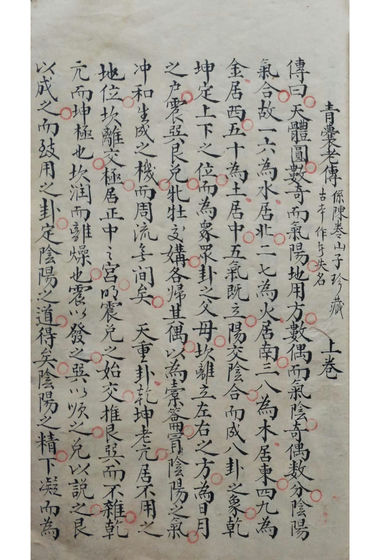 青囊老傳 係陳山子珍藏 古本作失名 上卷
傳曰天體圓數奇而氣陽地用方數偶而氣陰奇偶數分陰陽
氣合故一六為水居北二七為火居南三八為木居東四九為
金居西五十為土居中五氣既立陽交陰合而成八卦之象乾
坤定上下之位而為眾卦之父母坎離立左右之方為日月
之户震巽艮兌牝牡交媾各歸其偶以為橐籥冐陰陽之氣
冲和生成之機而周流无间矣 天重卦乾坤老亢居不用之
地位坎離交極居正中之宮明震兌之始交推艮巽而不雜乾
亢而坤極也坎润而離燥也震以發之巽以順之兌以説之艮
以成之而致用之卦定陰陽之道得矣陰陽之精下凝而為